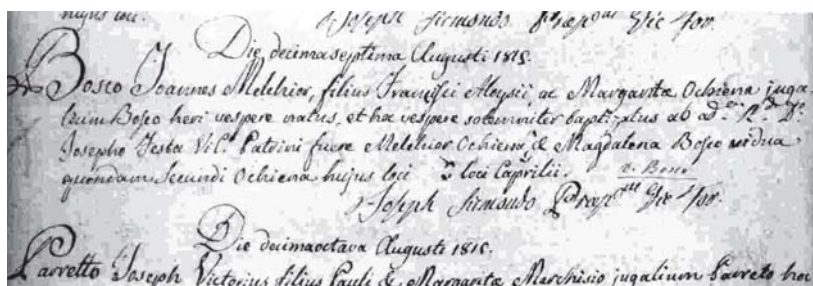 hujus loci.
Joseph Sismondo Præp.us Vic.s For.
Die decimaseptima Augusti 1815.
Bosco Joannes Melchior, filius Francisci Aloysii, ac Margaritæ Ochiena juga-
lium Bosco heri vespere natus, et hac vespere solemniter baptizatus ab ad. R.d D.
Josepho Festa Vic.o Patrini fuere Melchior Ochiena, & Magdalena Bosco vidua
quondam Secundi Ochiena hujus loci loci Caprilii. D. Bosco
Joseph Sismondo Præp.us Vic.s For.
Die decimaoctava Augusti 1815.
Parretto Joseph Victorius filius Pauli & Margaritæ Marchisio jugalium Parreto hac